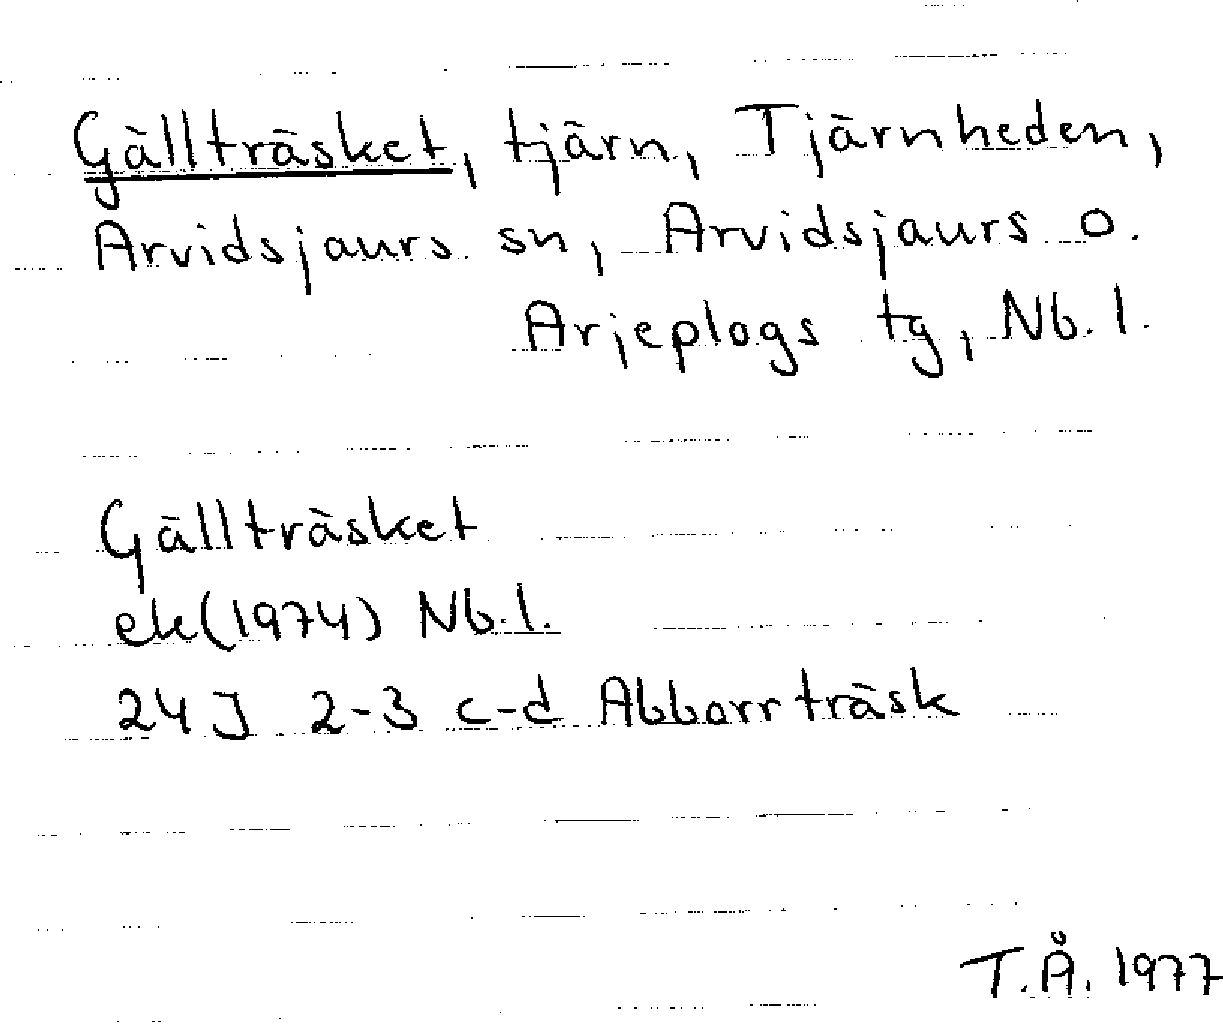 Gällträsket, tjärn, Tjärnheden,
Arvidsjaurs sn, Arvidsjaurs o.
Arjeplogs tg, Nb. l.
Gällträsket
ek(1974) Nb.l.
24J 2-3 c-d Abborrträsk
T.Å. 1977